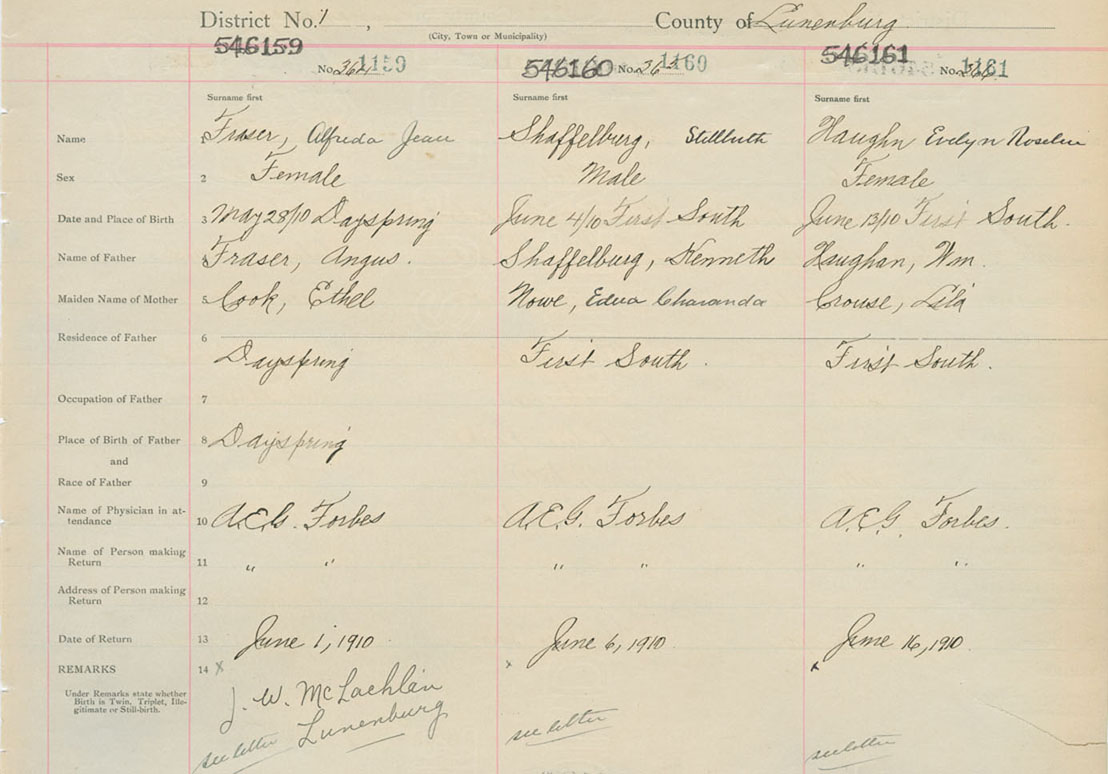 District No. 1 , County of Lunenburg
(City, Town or Municipality)
546159 546160 546161
No. 1159 No. 1160 No. 1161
Surname first Surname first Surname first
Name 1 Fraser, Alfreda Jean Shaffelburg, Stillbirth Haughn Evelyn Roselin
Sex 2 Female Male Female
Date and Place of Birth 3 May 28/10 Dayspring June 4/10 First South June 13/10 First South.
Name of Father Fraser, Angus. Shaffelburg, Kenneth Haughan, Wm.
Maiden Name of Mother 5 Cook, Ethel Nowe, Edna Crouse, Lila
Residence of Father 6
Dayspring First South. First South.
Occupation of Father 7
Place of Birth of Father 8 Dayspring
and
Race of Father 9
Name of Physician in at-
tendance 10 A.E.G. Forbes A.E.G. Forbes A.E.G. Forbes.
Name of Person making
Return 11 " " " " " "
Address of Person making
Return 12
Date of Return 13 June 1, 1910 June 6, 1910 June 16, 1910
REMARKS 14 x x x
Under Remarks state whether
Birth is Twin, Triplet, Ille-
gitimate or Still-birth.
J. W. McLachlan
Lunenburg
see letter see letter see letter